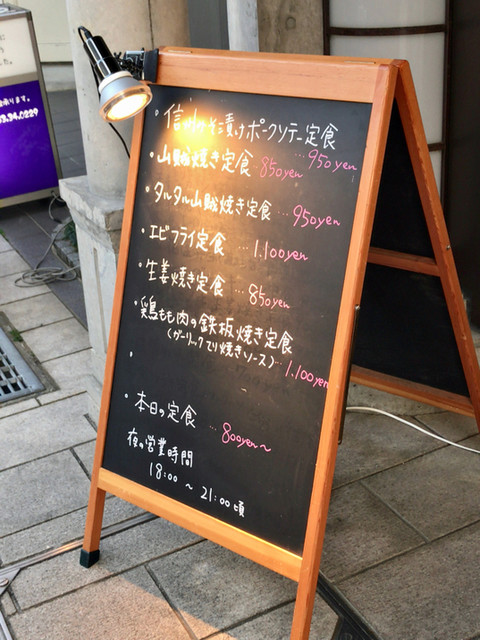 ・信州みそ漬けポークソテー定食
…950yen
・山賊焼き定食…850yen
・タルタル山賊焼き定食…950yen
・エビフライ定食…1.100yen
・生姜焼き定食…850yen
・鶏もも肉の鉄板焼き定食
(ガーリックてり焼きソース)…1.100yen
・
・本日の定食…800yen〜
夜の営業時間
18:00 〜 21:00頃
承ります。
94.0229